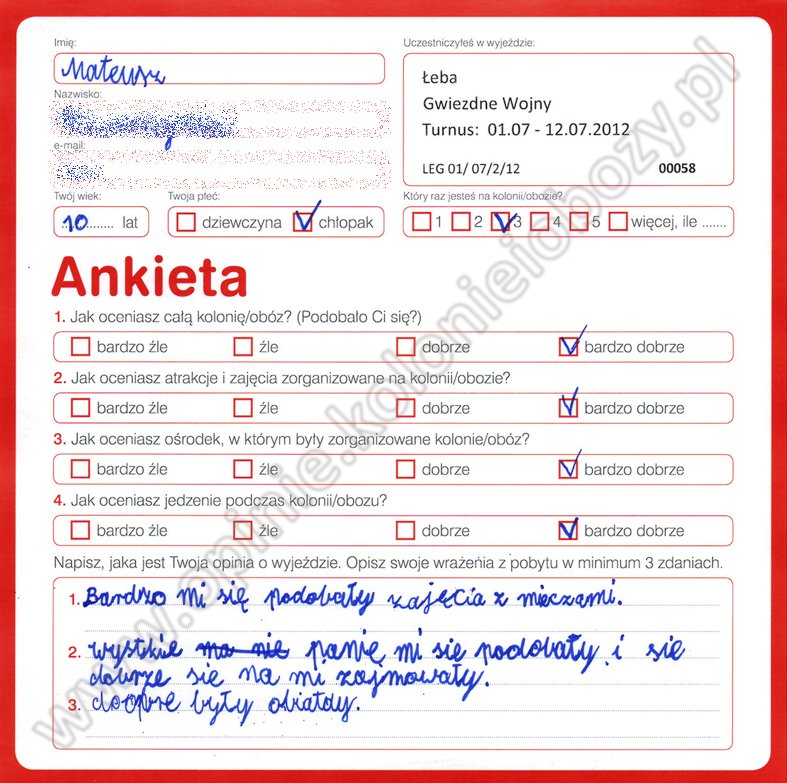 Imię:
Mateusz
Nazwisko:
e-mail:
Twój wiek:
10 lat
Twoja płeć:
dziewczyna chłopak
Uczestniczyłeś w wyjeździe:
Łeba
Gwiezdne Wojny
Turnus: 01.07 - 12.07.2012
LEG 01/ 07/2/12 00058
Który raz jesteś na kolonii/obozie?
1 2 3 4 5 więcej, ile .......
Ankieta
1. Jak oceniasz całą kolonię/obóz? (Podobało Ci się?)
bardzo źle źle dobrze bardzo dobrze
2. Jak oceniasz atrakcje i zajęcia zorganizowane na kolonii/obozie?
bardzo źle źle dobrze bardzo dobrze
3. Jak oceniasz ośrodek, w którym były zorganizowane kolonie/obóz?
bardzo źle źle dobrze bardzo dobrze
4. Jak oceniasz jedzenie podczas kolonii/obozu?
bardzo źle źle dobrze bardzo dobrze
Napisz, jaka jest Twoja opinia o wyjeździe. Opisz swoje wrażenia z pobytu w minimum 3 zdaniach.
1. Bardzo mi się podobały zajęcia z mieczami.
2. wystkie ma nie panie mi sie podobały i sie
dobrze sie na mi zajmowały.
3. doopre były obiatdy.
www.opinie.kolonieiobozy.pl